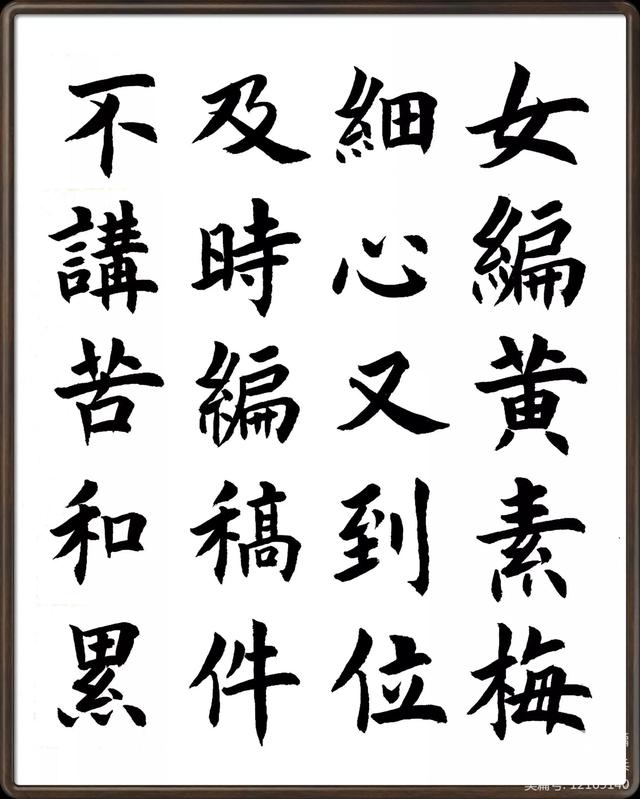 女編黄素梅
細心又到位
及時編稿件
不講苦和累